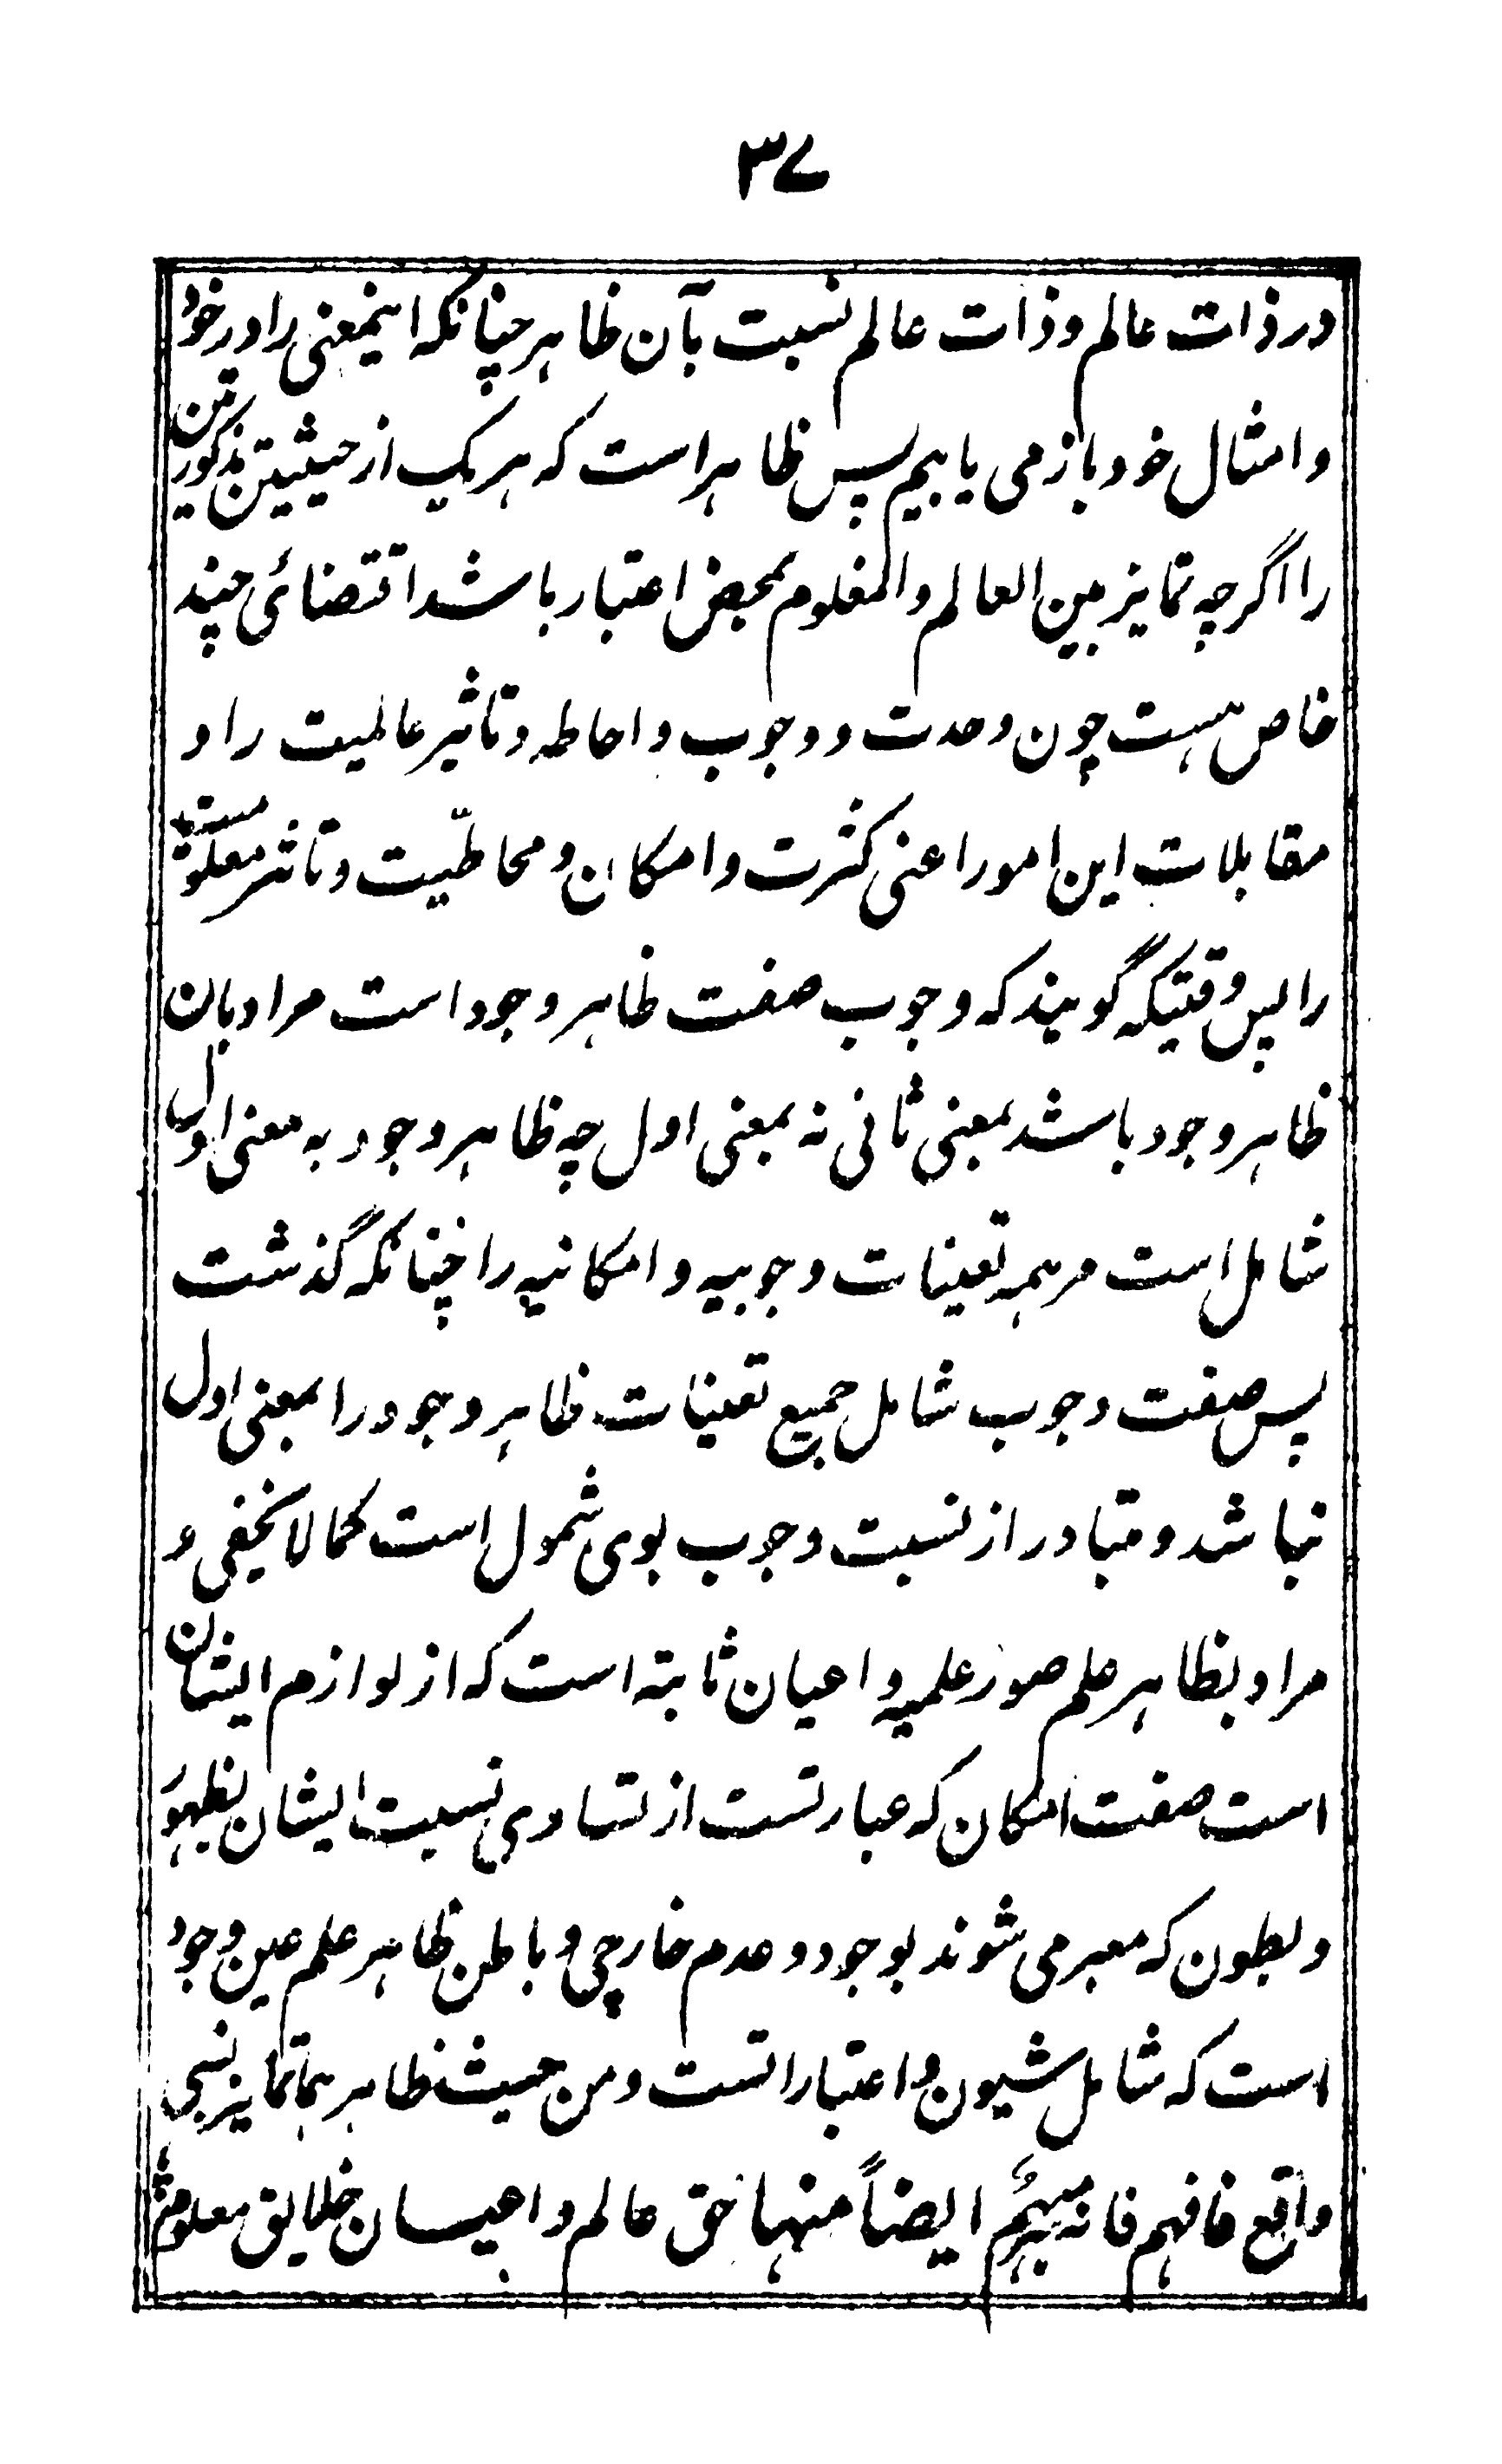 ۳۷
در ذات عالم و ذات عالم نسبت بآن ظاهر چنانکه اینمعنی را در خود
و امثال خود باز می یابیم پس ظاهر است که هر یک از حیثیتین مذکورتین
را اگرچه تمایز بین العالم والمعلوم بمحض اعتبار باشد اقتضائی چند
خاص هست چون وحدت و وجوب و احاطه و تاثیر عالمیت را و
مقابلات این امور اعنی کثرت و امکان و محاطیّت و تاثر معلومیت
را پس وقتیکه گویند که وجوب صفت ظاهر وجود است مراد بان
ظاهر وجود باشد بمعنی ثانی نه بمعنی اول چه ظاهر وجود به معنی اول
شامل است مر همه تعینات وجوبیه و امکانیه را چنانکه گذشت
پس صفت وجوب شامل جمیع تعینات ظاهر وجود را بمعنی اول
نباشد و متبادر از نسبت وجوب بوی شمول است کما لا یخفی و
مراد بظاهر علم صور علمیه و اعیان ثابته است که از لوازم ایشان
است صفت امکان که عبارتست از تساوی نسبت ایشان بظهور
و بطون که معبر می شوند بوجود و عدم خارجی و باطن ظاهر علم عین وجود
است که شامل شیون و اعتباراتست و من حیث ظاهر بهما تمایز نسبی
واقع فافهم فانه مبهم ایضاً منها حق عالم و اعیان خلایق معلوم